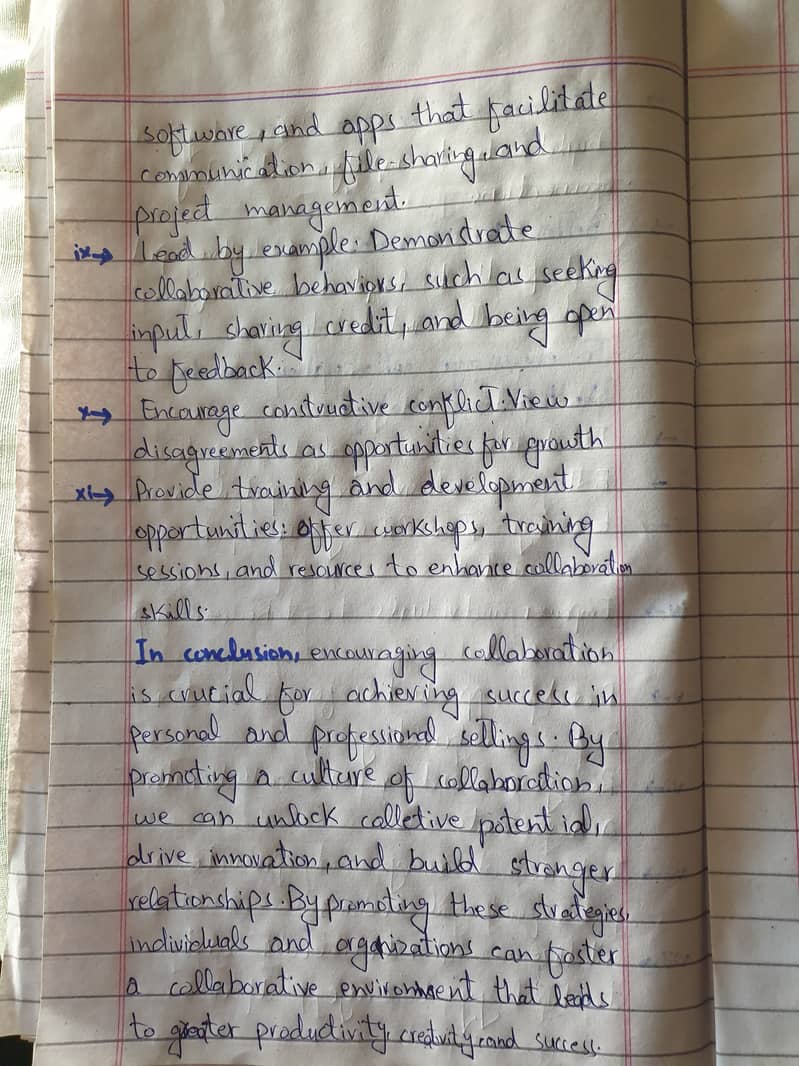 software, and apps that facilitate
communication, file-sharing, and
project management.
ix→ Lead by example. Demonstrate
collaborative behaviors, such as seeking
input, sharing credit, and being open
to feedback.
x→ Encourage constructive conflict. View
disagreements as opportunities for growth
xi→ Provide training and development
opportunities: offer workshops, training
sessions, and resources to enhance collaboration
skills.
In conclusion, encouraging collaboration
is crucial for achieving success in
personal and professional settings. By
promoting a culture of collaboration,
we can unlock colletive potential,
drive innovation, and build stronger
relationships. By promoting these strategies,
individuals and organizations can foster
a collaborative environment that leads
to greater productivity, creativity, and success.